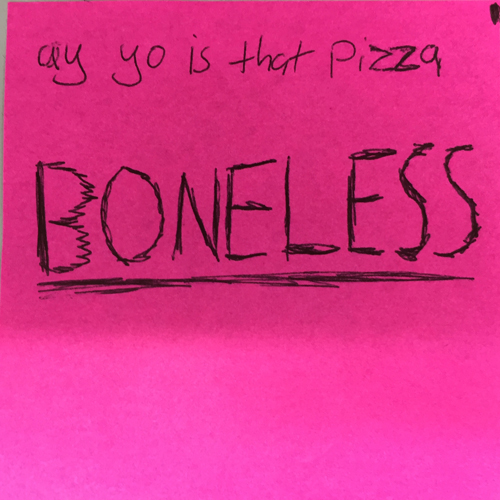 ay yo is that pizza
BONELESS